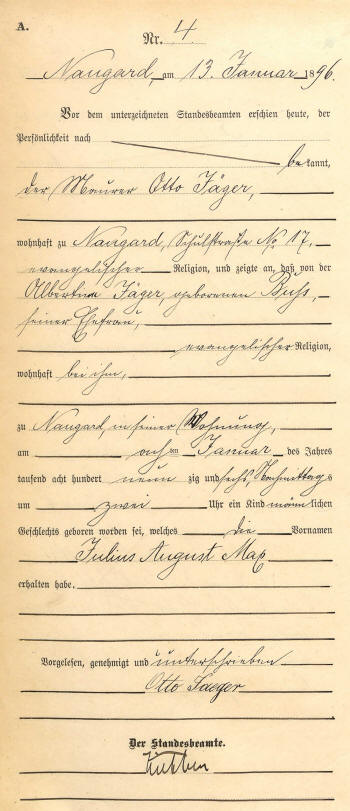 A.
Nr. 4
Naugard, am 13. Januar 1896.
Vor dem unterzeichneten Standesbeamten erschien heute, der
Persönlichkeit nach
bekannt,
der Maurer Otto Jäger,
wohnhaft zu Naugard, Schulstraße No 17,
evangelischer Religion, und zeigte an, daß von der
Albertine Jäger, geborenen Buss,
seiner Ehefrau,
evangelischer Religion,
wohnhaft bei ihm,
zu Naugard, in seiner Wohnung,
am ten Januar des Jahres
tausend acht hundert neun zig und sechs, Nachmittags
um zwei Uhr ein Kind männlichen
Geschlechts geboren worden sei, welches die Vornamen
Julius August Max
erhalten habe.
Vorgelesen, genehmigt und unterschrieben
Otto Jaeger
Der Standesbeamte.